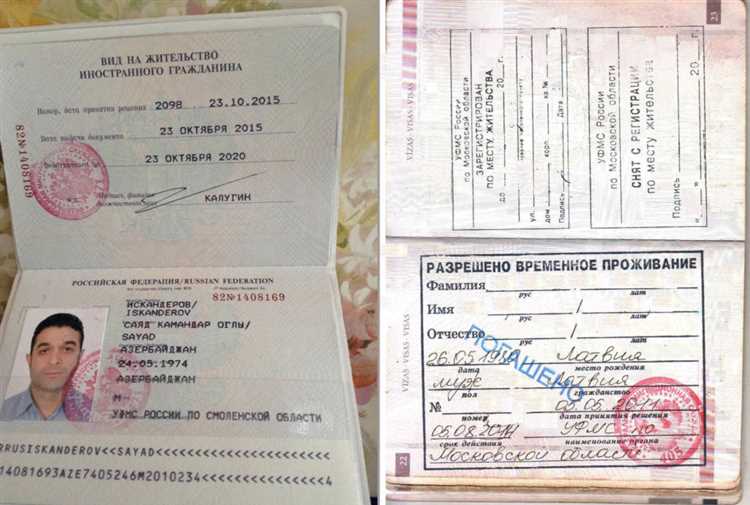 ВИД НА ЖИТЕЛЬСТВО
ИНОСТРАННОГО ГРАЖДАНИНА
Номер, дата принятия решения 2098 23.10.2015
Дата выдачи документа 23 ОКТЯБРЯ 2015
23 ОКТЯБРЯ 2020
КАЛУГИН
82№1408169
РОССИЙСКАЯ ФЕДЕРАЦИЯ/RUSSIAN FEDERATION
82№1408169
ИСКАНДЕРОВ/
ISKANDEROV
САЯД КАМАНДАР ОГЛЫ/
SAYAD
АЗЕРБАЙДЖАН
24.05.1974
АЗЕРБАЙДЖАН
М
УФМС РОССИИ ПО СМОЛЕНСКОЙ ОБЛАСТИ
RRUSISKANDEROV<<SAYAD<<<<<<<<<<<<<<<
VIZAS-VISAS-VISAS
23
УФМС России
по Московской области
ЗАРЕГИСТРИРОВАН
ПО МЕСТУ ЖИТЕЛЬСТВА
до 20 г.
ул.
дом корп. кв.№
Подпись Дата
УФМС России
по Московской области
СНЯТ С РЕГИСТРАЦИИ
по месту жительства
Подпись
" " 20 г.
VIZAS-VISAS-VISAS
22
РАЗРЕШЕНО ВРЕМЕННОЕ ПРОЖИВАНИЕ
Фамилия /
рус лат
Имя /
рус лат
Отчество /
рус лат
ПОГАШЕНО
Латвия
дата место рождения
муж Латвия
пол гражданство
№ 05.05.2011
номер дата принятия решения
УФМС по
срок действия наименование органа
Московской области